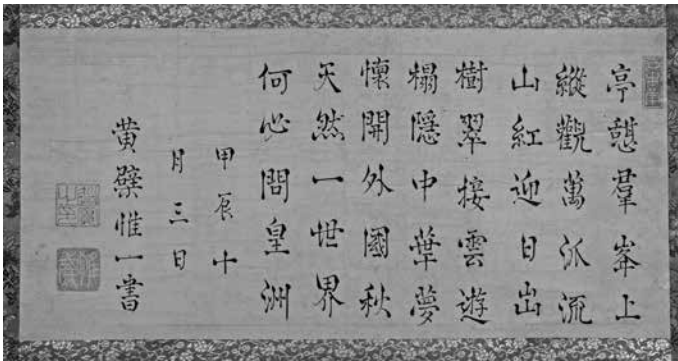 亭憩羣峯上
縱觀萬泒流
山紅迎日出
樹翠接雲遊
榻隱中華夢
懷開外國秋
天然一世界
何必問皇洲
甲辰十
月三日
黄檗惟一書